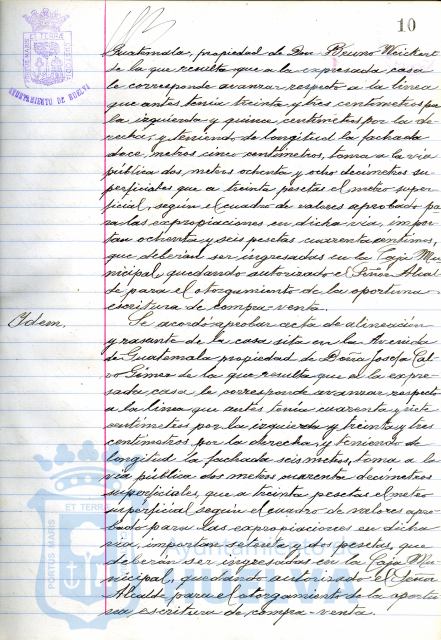 10
PORTUS MARIS
ET TERRÆ
AYUNTAMIENTO DE HUELVA
Guatemala, propiedad de Don Bruno Weickert
de la que resulta que a la expresada casa
le corresponde avanzar respecto a la línea
que antes tenía treinta y tres centímetros por
la izquierda y quince centímetros por la de-
recha; y teniendo de longitud la fachada
doce metros cinco centímetros, toma a la vía
pública dos metros ochenta y ocho decímetros su-
perficiales que a treinta pesetas el metro super-
ficial, según el cuadro de valores aprobado pa-
ra las expropiaciones en dicha vía, impor-
tan ochenta y seis pesetas cuarenta céntimos,
que deberán ser ingresadas en la Caja Mu-
nicipal, quedando autorizado el Señor Alcal-
de para el otorgamiento de la oportuna
escritura de compra-venta.
Idem.
Se acordó aprobar acta de alineación
y rasante de la casa sita en la Avenida
de Guatemala propiedad de Doña Josefa Cal-
vo Gómez de la que resulta que a la expre-
sada casa le corresponde avanzar respecto
a la línea que antes tenía cuarenta y siete
centímetros por la izquierda y treinta y tres
centímetros por la derecha, y teniendo de
longitud la fachada seis metros, toma a la
vía pública dos metros cuarenta decímetros
superficiales, que a treinta pesetas el metro
superficial según el cuadro de valores apro-
bado para las expropiaciones en dicha
vía, importan setenta y dos pesetas, que
deberán ser ingresadas en la Caja Mu-
nicipal, quedando autorizado el Señor
Alcalde para el otorgamiento de la oportu-
na escritura de compra-venta.
PORTUS MARIS
ET TERRÆ
Ayuntamiento de
HUELVA